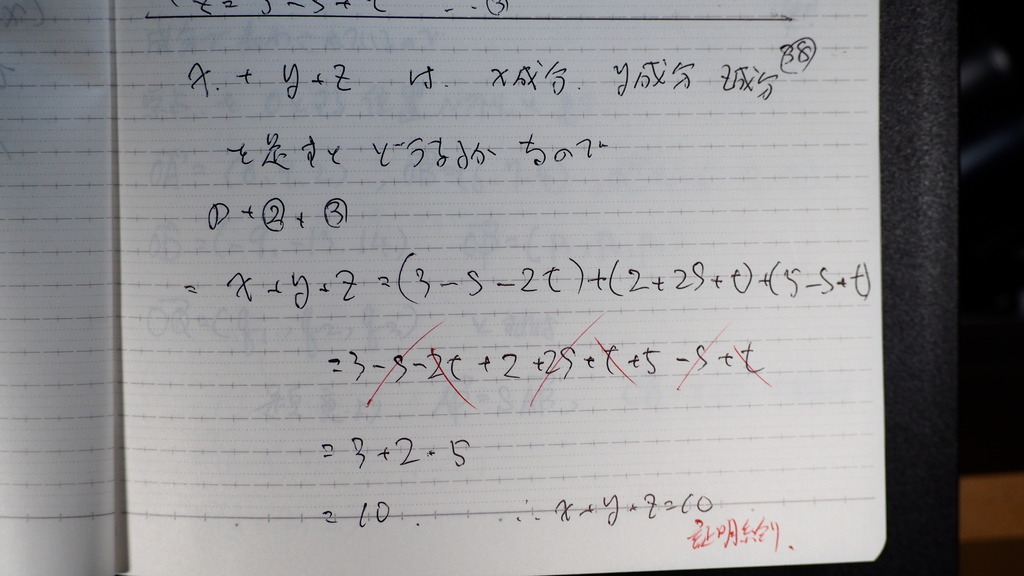 z = 5 - s + t ... ③
x + y + z は x成分 y成分 z成分
を足すと どうなるか なので
① + ② + ③
= x + y + z = (3 - s - 2t) + (2 + 2s + t) + (5 - s + t)
= 3 - s - 2t + 2 + 2s + t + 5 - s + t
= 3 + 2 + 5
= 10. ∴ x + y + z = 10
証明終り.